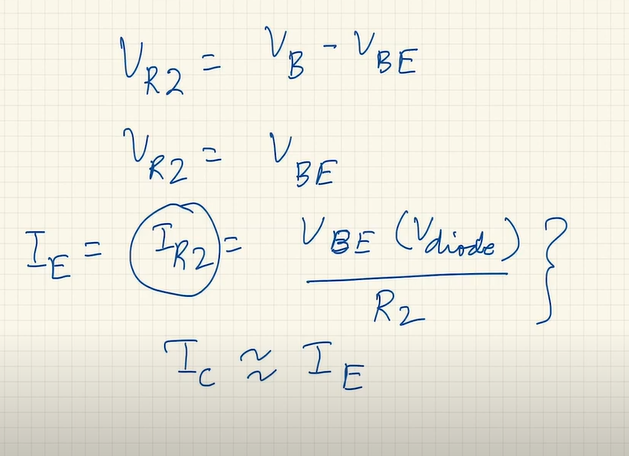 V_R2 = V_B - V_BE
V_R2 = V_BE
I_E = I_R2 = V_BE (V_diode) / R_2 }
I_C ≈ I_E